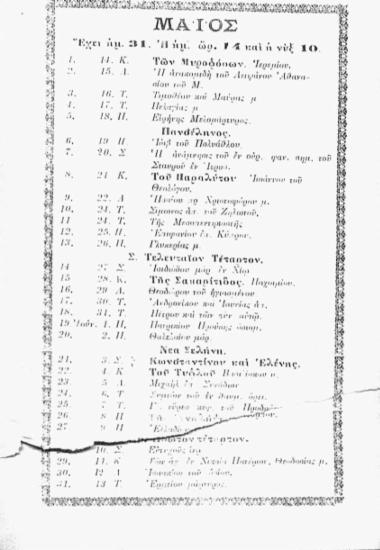 ΜΑΪΟΣ
Ἔχει ἡμ. 31. Ἡ ἡμ. ὡρ. 14 καὶ ἡ νὺξ 10.
1. 14. Κ. Τῶν Μυροφόρων. Ἱερεμίου.
2. 15. Δ. Ἡ ἀνακομιδὴ τοῦ Λειψάνου Ἀθανα-
σίου τοῦ Μ.
3. 16. Τ. Τιμοθέου καὶ Μαύρας μ
4. 17. Τ. Πελαγίας μ
5. 18. Π. Εἰρήνης Μεγαλομάρτυρος.
Πανσέληνος.
6. 19 Π Ἰὼβ τοῦ Πολυάθλου.
7. 20. Σ Ἡ ἀνάμνησις τοῦ ἐν οὐρ. φαν. σημ. τοῦ
Σταυροῦ ἐν Ἱερουσ.
8. 21 Κ. Τοῦ Παραλύτου Ἰωάννου τοῦ
Θεολόγου.
9. 22. Δ Ἡσαΐου πρ Χριστοφόρου μ.
10. 24. Τ. Σίμωνος ἀπ. τοῦ Ζηλωτοῦ.
11 24 Τ. Τῆς Μεσοπεντηκοστῆς
12. 25. Π. Ἐπιφανίου ἐπ. Κύπρου.
13. 26. Π. Γλυκερίας μ.
Σ. Τελευταῖον Τέταρτον.
14 27 Σ. Ἰσιδώρου μάρ ἐν Χίῳ
15. 28. Κ. Τῆς Σαμαρίτιδος. Παχωμίου.
16. 29 Δ. Θεοδώρου τοῦ ἡγιασμένου
17. 30. Τ. Ἀνδρονίκου καὶ Ἰουνίας ἀπ.
18. 31. Τ. Πέτρου καὶ τῶν σὺν αὐτῷ.
19 Ἰουν. 1. Π. Πατρικίου Προύσης
20. 2. Π. Θαλελαίου μάρ.
Νέα Σελήνη.
21. 3. Σ. Κωνσταντίνου καὶ Ἑλένης.
22. 4. Κ Τοῦ Τυφλοῦ
23. 5 Δ. Μιχαὴλ ἐπ. Συνάδων
24. 6. Τ Συμεὼν τοῦ ἐν θαυμ. ὄρει.
25 7 Τ. Γ. εὕρεσ τοῦ Προδρ
26 8 Π
27 9 Π
τέταρτον.
10. Σ. Εὐτυχοῦς
29. 11. Κ Τῶν ἁγ ἐν Νικαίᾳ Πατέρων, Θεοδοσίας μ.
30. 12 Δ Ἰσαακίου τοῦ ὁσίου.
31. 13 Τ. Ἑρμείου μάρτυρος.